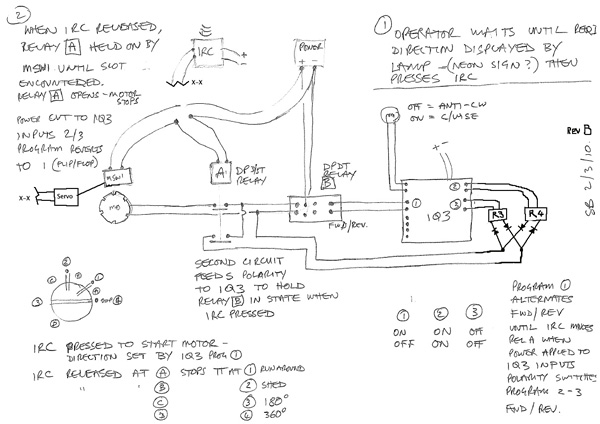 2
WHEN IRC RELEASED,
RELAY A HELD ON BY
MSW1 UNTIL SLOT
ENCOUNTERED.
RELAY A OPENS - MOTOR
STOPS
POWER CUT TO IQ3
INPUTS 2/3
PROGRAM REVERTS
TO 1 (FLIP/FLOP)
IRC
+
-
X-X
POWER
+ -
1
OPERATOR WAITS UNTIL REQ
DIRECTION DISPLAYED BY
LAMP - (NEON SIGN?) THEN
PRESSES IRC
OFF = ANTI-CW
ON = C/WISE
REV B
SB 2/3/10.
X-X
Servo
MSW1
MO
A
DPDT
RELAY
DPDT
RELAY
B
FWD/REV.
+ -
1
2
3
IQ3
R3
R4
SECOND CIRCUIT
FEEDS POLARITY
TO IQ3 TO HOLD
RELAY B IN STATE WHEN
IRC PRESSED
1 2 3
ON ON OFF
OFF ON OFF
PROGRAM 1
ALTERNATES
FWD/REV
UNTIL IRC MAKES
REL A WHEN
POWER APPLIED TO
IQ3 INPUTS
POLARITY SWITCHES
PROGRAM 2-3
FWD/REV.
IRC PRESSED TO START MOTOR -
DIRECTION SET BY IQ3 PROG 1
IRC RELEASED AT A STOPS TT AT 1 RUNAROUND
" " B 2 SHED
C 3 180°
D 4 360°